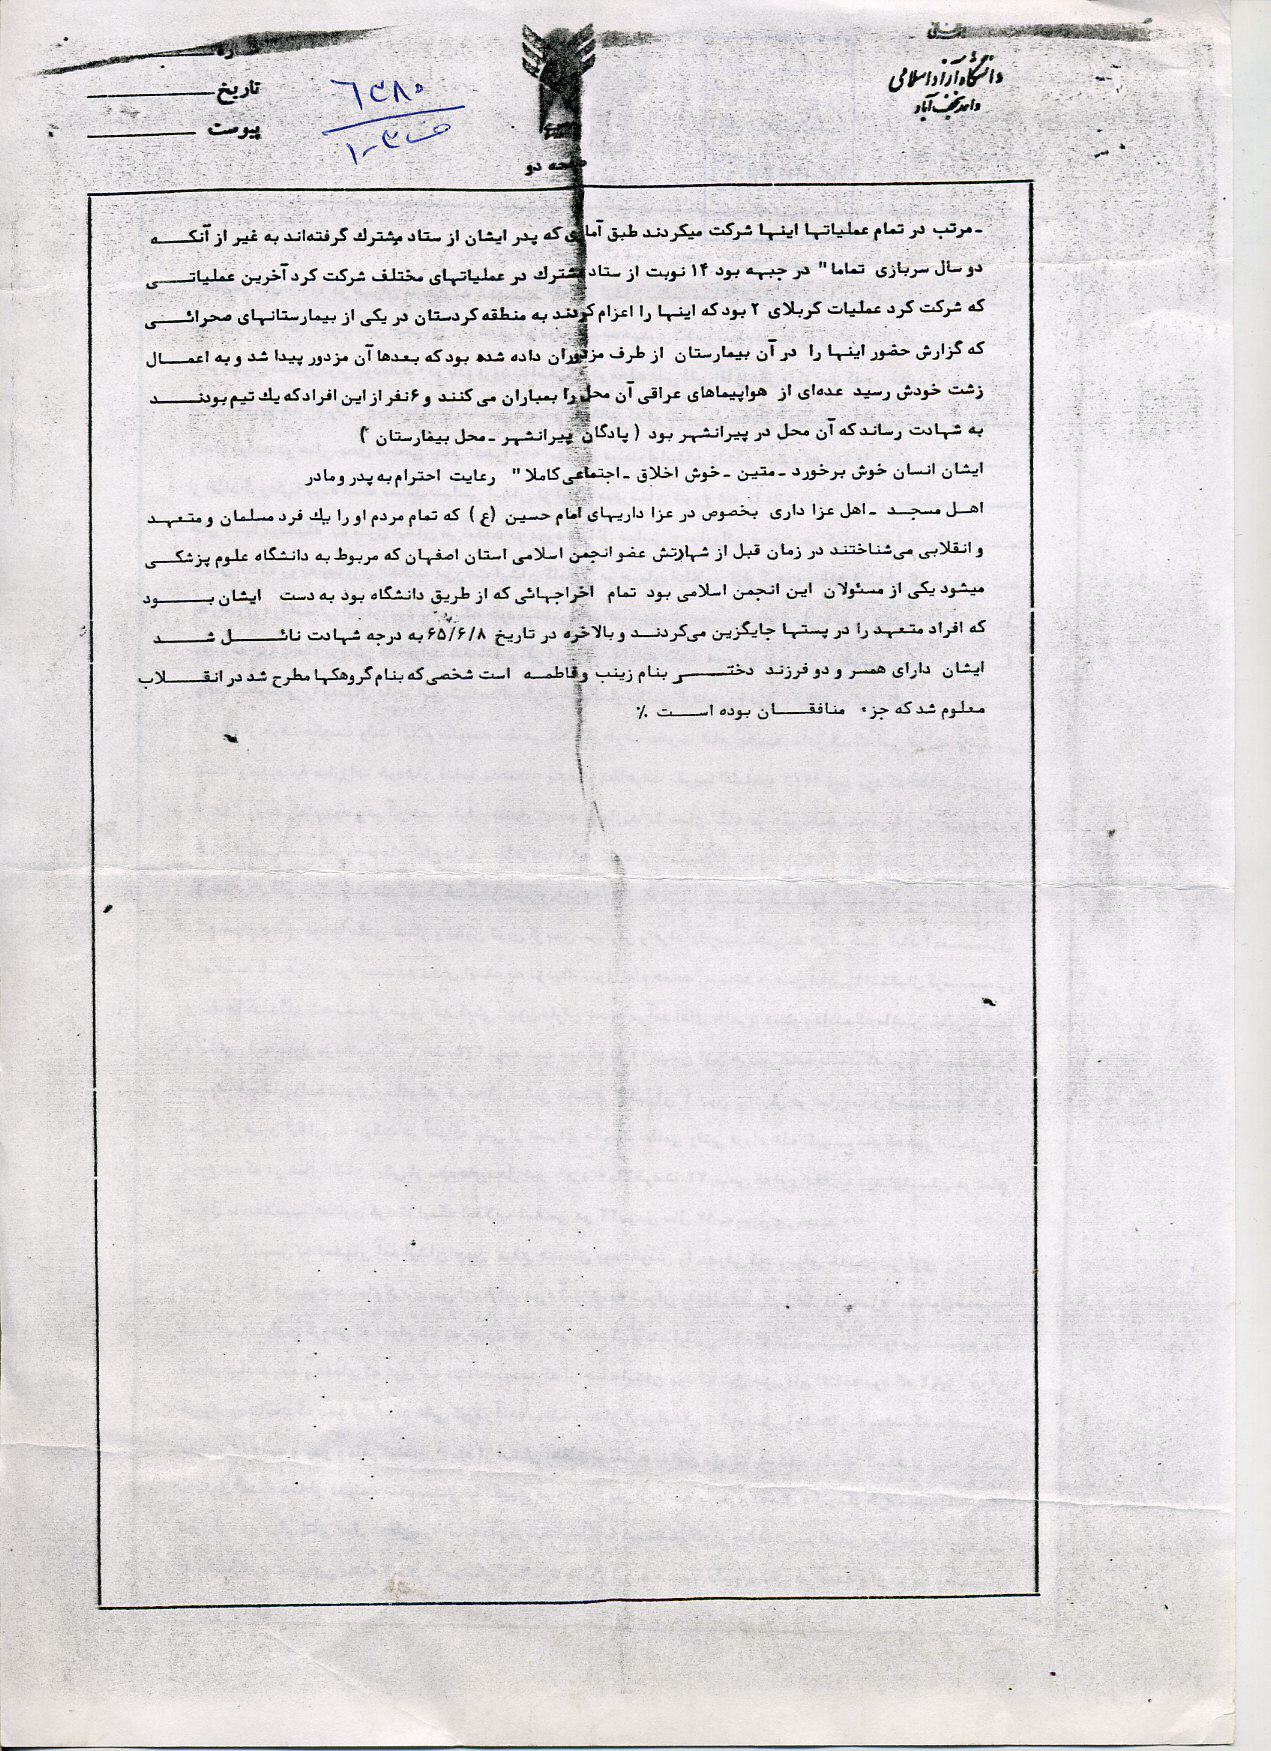 دانشگاه آزاد اسلامی
واحد نجف آباد
شماره
تاریخ
پیوست
۶۳۸۰
صفحه دو
ـ مرتب در تمام عملیاتها اینها شرکت میکردند طبق آماری که پدر ایشان از ستاد مشترك گرفته‌اند به غیر از آنکه
دو سال سربازی تماما" در جبهه بود ۱۴ نوبت از ستاد مشترك در عملیاتهای مختلف شرکت کرد آخرین عملیاتی
که شرکت کرد عملیات کربلای ۲ بود که اینها را اعزام کردند به منطقه کردستان در یکی از بیمارستانهای صحرائی
که گزارش حضور اینها را در آن بیمارستان از طرف مزدوران داده شده بود که بعدها آن مزدور پیدا شد و به اعمال
زشت خودش رسید عده‌ای از هواپیماهای عراقی آن محل را بمباران می کنند و ۶ نفر از این افراد که یك تیم بودند
به شهادت رساند که آن محل در پیرانشهر بود ( پادگان پیرانشهر ـ محل بیمارستان )
ایشان انسان خوش برخورد ـ متین ـ خوش اخلاق ـ اجتماعی کاملا" رعایت احترام به پدر و مادر
اهل مسجد ـ اهل عزا داری بخصوص در عزا داریهای امام حسین (ع) که تمام مردم او را یك فرد مسلمان و متعهد
و انقلابی می‌شناختند در زمان قبل از شهادتش عضو انجمن اسلامی استان اصفهان که مربوط به دانشگاه علوم پزشکی
میشود یکی از مسئولان این انجمن اسلامی بود تمام اخراجهائی که از طریق دانشگاه بود به دست ایشان بود
که افراد متعهد را در پستها جایگزین می‌کردند و بالاخره در تاریخ ۶۵/۶/۸ به درجه شهادت نائل شد
ایشان دارای همسر و دو فرزند دختر بنام زینب و فاطمه است شخصی که بنام گروهکها مطرح شد در انقلاب
معلوم شد که جزء منافقان بوده است ٪